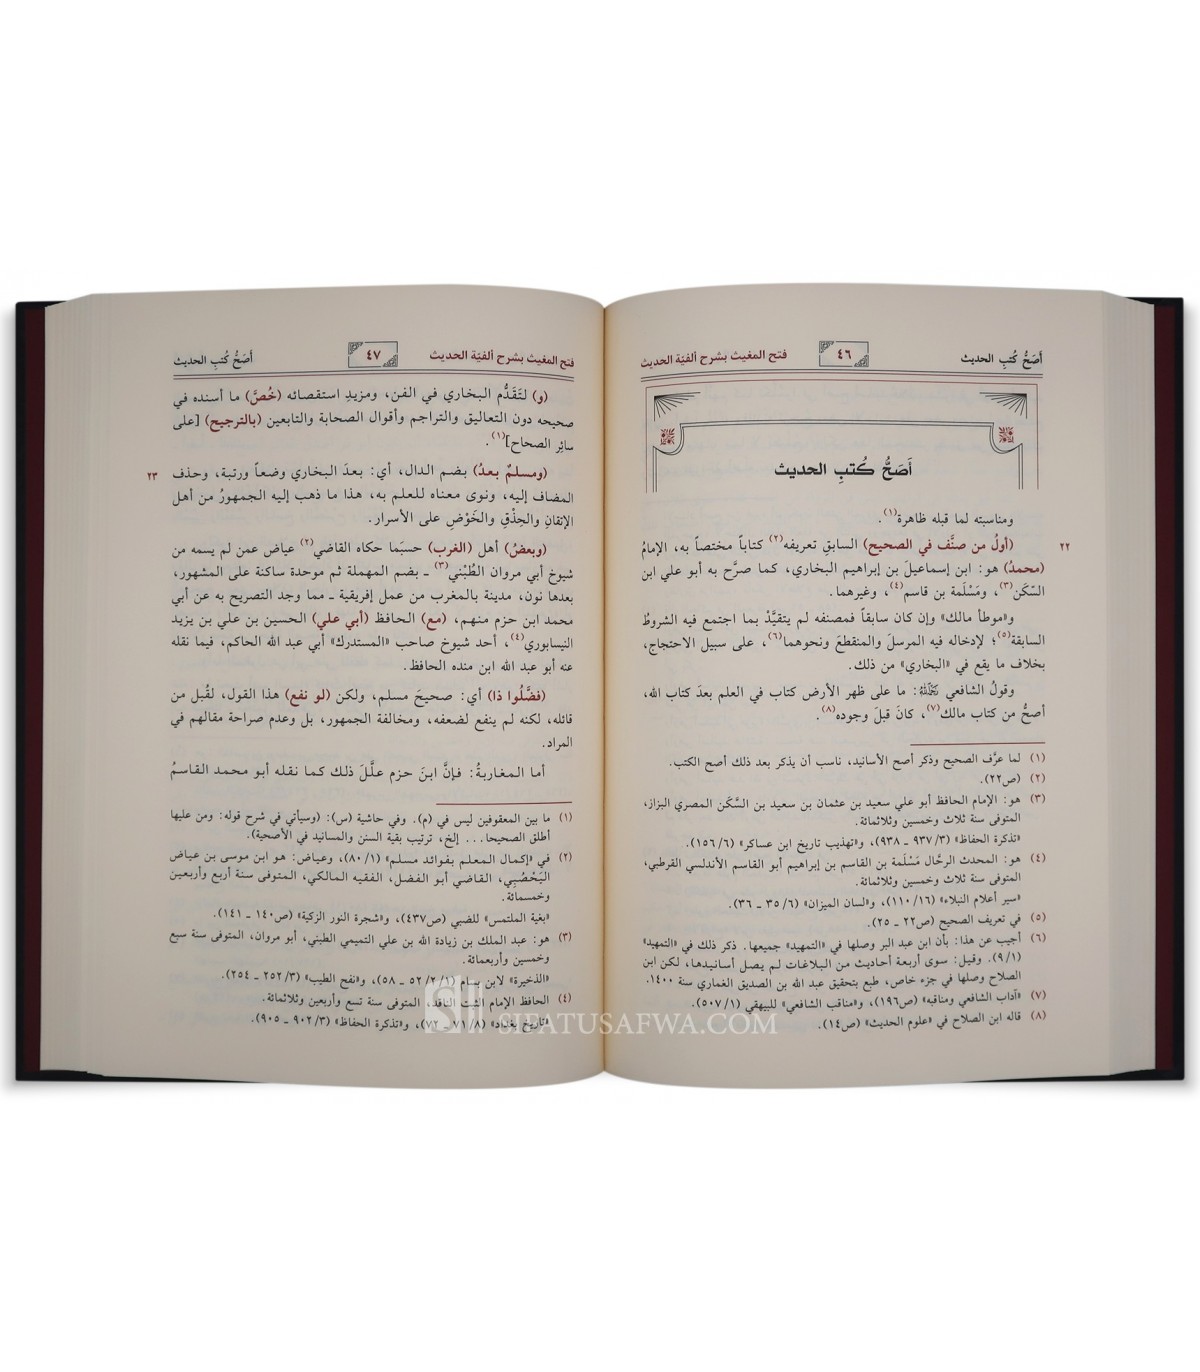 أصَحُّ كُتبِ الحديث
٤٦
فتح المغيث بشرح ألفيّة الحديث
أَصَحُّ كُتبِ الحديث
ومناسبته لما قبله ظاهرة(١).
٢٢
(أولُ من صنَّف في الصحيح) السابقِ تعريفه(٢) كتاباً مختصاً به، الإمامُ
(محمدُ) هو: ابن إسماعيلَ بن إبراهيم البخاري، كما صرَّح به أبو علي ابن
السَّكَن(٣)، ومَسْلَمة بن قاسم(٤)، وغيرهما.
و«موطأ مالك» وإن كان سابقاً فمصنفه لم يتقيَّدْ بما اجتمع فيه الشروطُ
السابقة(٥)؛ لإدخاله فيه المرسلَ والمنقطعَ ونحوهما(٦)، على سبيل الاحتجاج،
بخلاف ما يقع في «البخاري» من ذلك.
وقولُ الشافعي رَحِمَهُ اللهُ: ما على ظهر الأرض كتاب في العلم بعدَ كتاب الله،
أصحُّ من كتاب مالك(٧)، كانَ قبلَ وجوده(٨).
(١) لما عرَّف الصحيح وذكر أصح الأسانيد، ناسب أن يذكر بعد ذلك أصح الكتب.
(٢) (ص٢٢).
(٣) هو: الإمام الحافظ أبو علي سعيد بن عثمان بن سعيد بن السَّكَن المصري البزاز،
المتوفى سنة ثلاث وخمسين وثلاثمائة.
«تذكرة الحفاظ» (٩٣٧/٣ ـ ٩٣٨)، و«تهذيب تاريخ ابن عساكر» (١٥٦/٦).
(٤) هو: المحدث الرحَّال مَسْلَمة بن القاسم بن إبراهيم أبو القاسم الأندلسي القرطبي،
المتوفى سنة ثلاث وخمسين وثلاثمائة.
«سير أعلام النبلاء» (١١٠/١٦)، و«لسان الميزان» (٣٥/٦ ـ ٣٦).
(٥) في تعريف الصحيح (ص٢٢ ـ ٢٥).
(٦) أجيب عن هذا: بأن ابن عبد البر وصلها في «التمهيد» جميعها. ذكر ذلك في «التمهيد»
(٩/١). وقيل: سوى أربعة أحاديث من البلاغات لم يصل أسانيدها، لكن ابن
الصلاح وصلها في جزء خاص، طبع بتحقيق عبد الله بن الصديق الغماري سنة ١٤٠٠.
(٧) «آداب الشافعي ومناقبه» (ص١٩٦)، و«مناقب الشافعي» للبيهقي (٥٠٧/١).
(٨) قاله ابن الصلاح في «علوم الحديث» (ص١٤).
فتح المغيث بشرح ألفيّة الحديث
٤٧
أصَحُّ كُتبِ الحديث
(و) لتَقَدُّم البخاري في الفن، ومزيدِ استقصائه (خُصَّ) ما أسنده في
صحيحه دون التعاليق والتراجم وأقوال الصحابة والتابعين (بالترجيح) [على
سائِر الصحاح](١).
٢٣
(ومسلمٌ بعدُ) بضم الدال، أي: بعدَ البخاري وضعاً ورتبة، وحذف
المضاف إليه، ونوى معناه للعلم به، هذا ما ذهب إليه الجمهورُ من أهل
الإتقانِ والحِذْقِ والخَوْضِ على الأسرار.
(وبعضُ) أهل (الغرب) حسبَما حكاه القاضي(٢) عياض عمن لم يسمه من
شيوخ أبي مروان الطُبْني(٣) ـ بضم المهملة ثم موحدة ساكنة على المشهور،
بعدها نون، مدينة بالمغرب من عمل إفريقية ـ مما وجد التصريح به عن أبي
محمد ابن حزم منهم، (مع) الحافظ (أبي علي) الحسين بن علي بن يزيد
النيسابوري(٤)، أحد شيوخ صاحب «المستدرك» أبي عبد الله الحاكم، فيما نقله
عنه أبو عبد الله ابن منده الحافظ.
(فضَّلُوا ذا) أي: صحيحَ مسلم، ولكن (لو نفع) هذا القول، لقُبل من
قائله، لكنه لم ينفع لضعفه، ومخالفة الجمهور، بل وعدم صراحة مقالهم في
المراد.
أما المغاربةُ: فإنَّ ابنَ حزم علَّل ذلك كما نقله أبو محمد القاسمُ
(١) ما بين المعقوفين ليس في (م). وفي حاشية (س): (وسيأتي في شرح قوله: ومن عليها
أطلق الصحيحا... إلخ، ترتيب بقية السنن والمسانيد في الأصحية).
(٢) في «إكمال المعلم بفوائد مسلم» (٨٠/١)، وعياض: هو ابن موسى بن عياض
اليَحْصُبِي، القاضي أبو الفضل، الفقيه المالكي، المتوفى سنة أربع وأربعين
وخمسمائة.
«بغية الملتمس» للضبي (ص٤٣٧)، و«شجرة النور الزكية» (ص١٤٠ ـ ١٤١).
(٣) هو: عبد الملك بن زيادة الله بن علي التميمي الطبني، أبو مروان، المتوفى سنة سبع
وخمسين وأربعمائة.
«الذخيرة» لابن بسام (٥٢/٢/١ ـ ٥٨)، و«نفح الطيب» (٢٥٢/٣ ـ ٢٥٤).
(٤) الحافظ الإمام الثبت الناقد، المتوفى سنة تسع وأربعين وثلاثمائة.
«تاريخ بغداد» (٧١/٨ ـ ٧٢)، و«تذكرة الحفاظ» (٩٠٢/٣ ـ ٩٠٥).
SIFATUSAFWA.COM